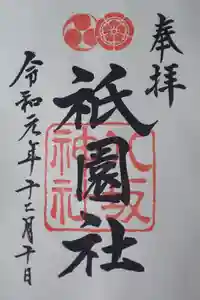 奉拝
祇園社
八坂神社
令和元年十二月十日